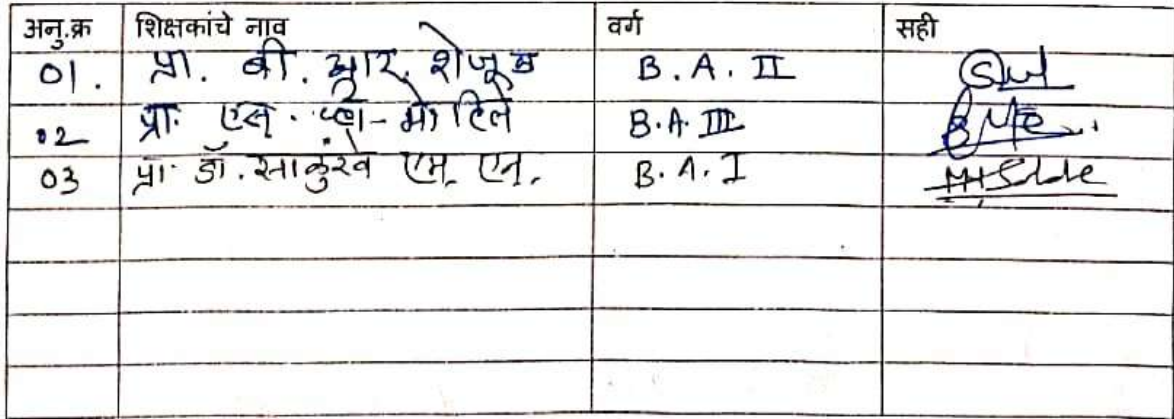 अनु.क्र शिक्षकांचे नाव वर्ग सही
01. प्रा. बी. आर. शेजूळ B.A. II
02 प्रा. एस. व्ही. मोहिते B.A. III
03 प्रा. डॉ. साळुंखे एम. एन. B.A. I